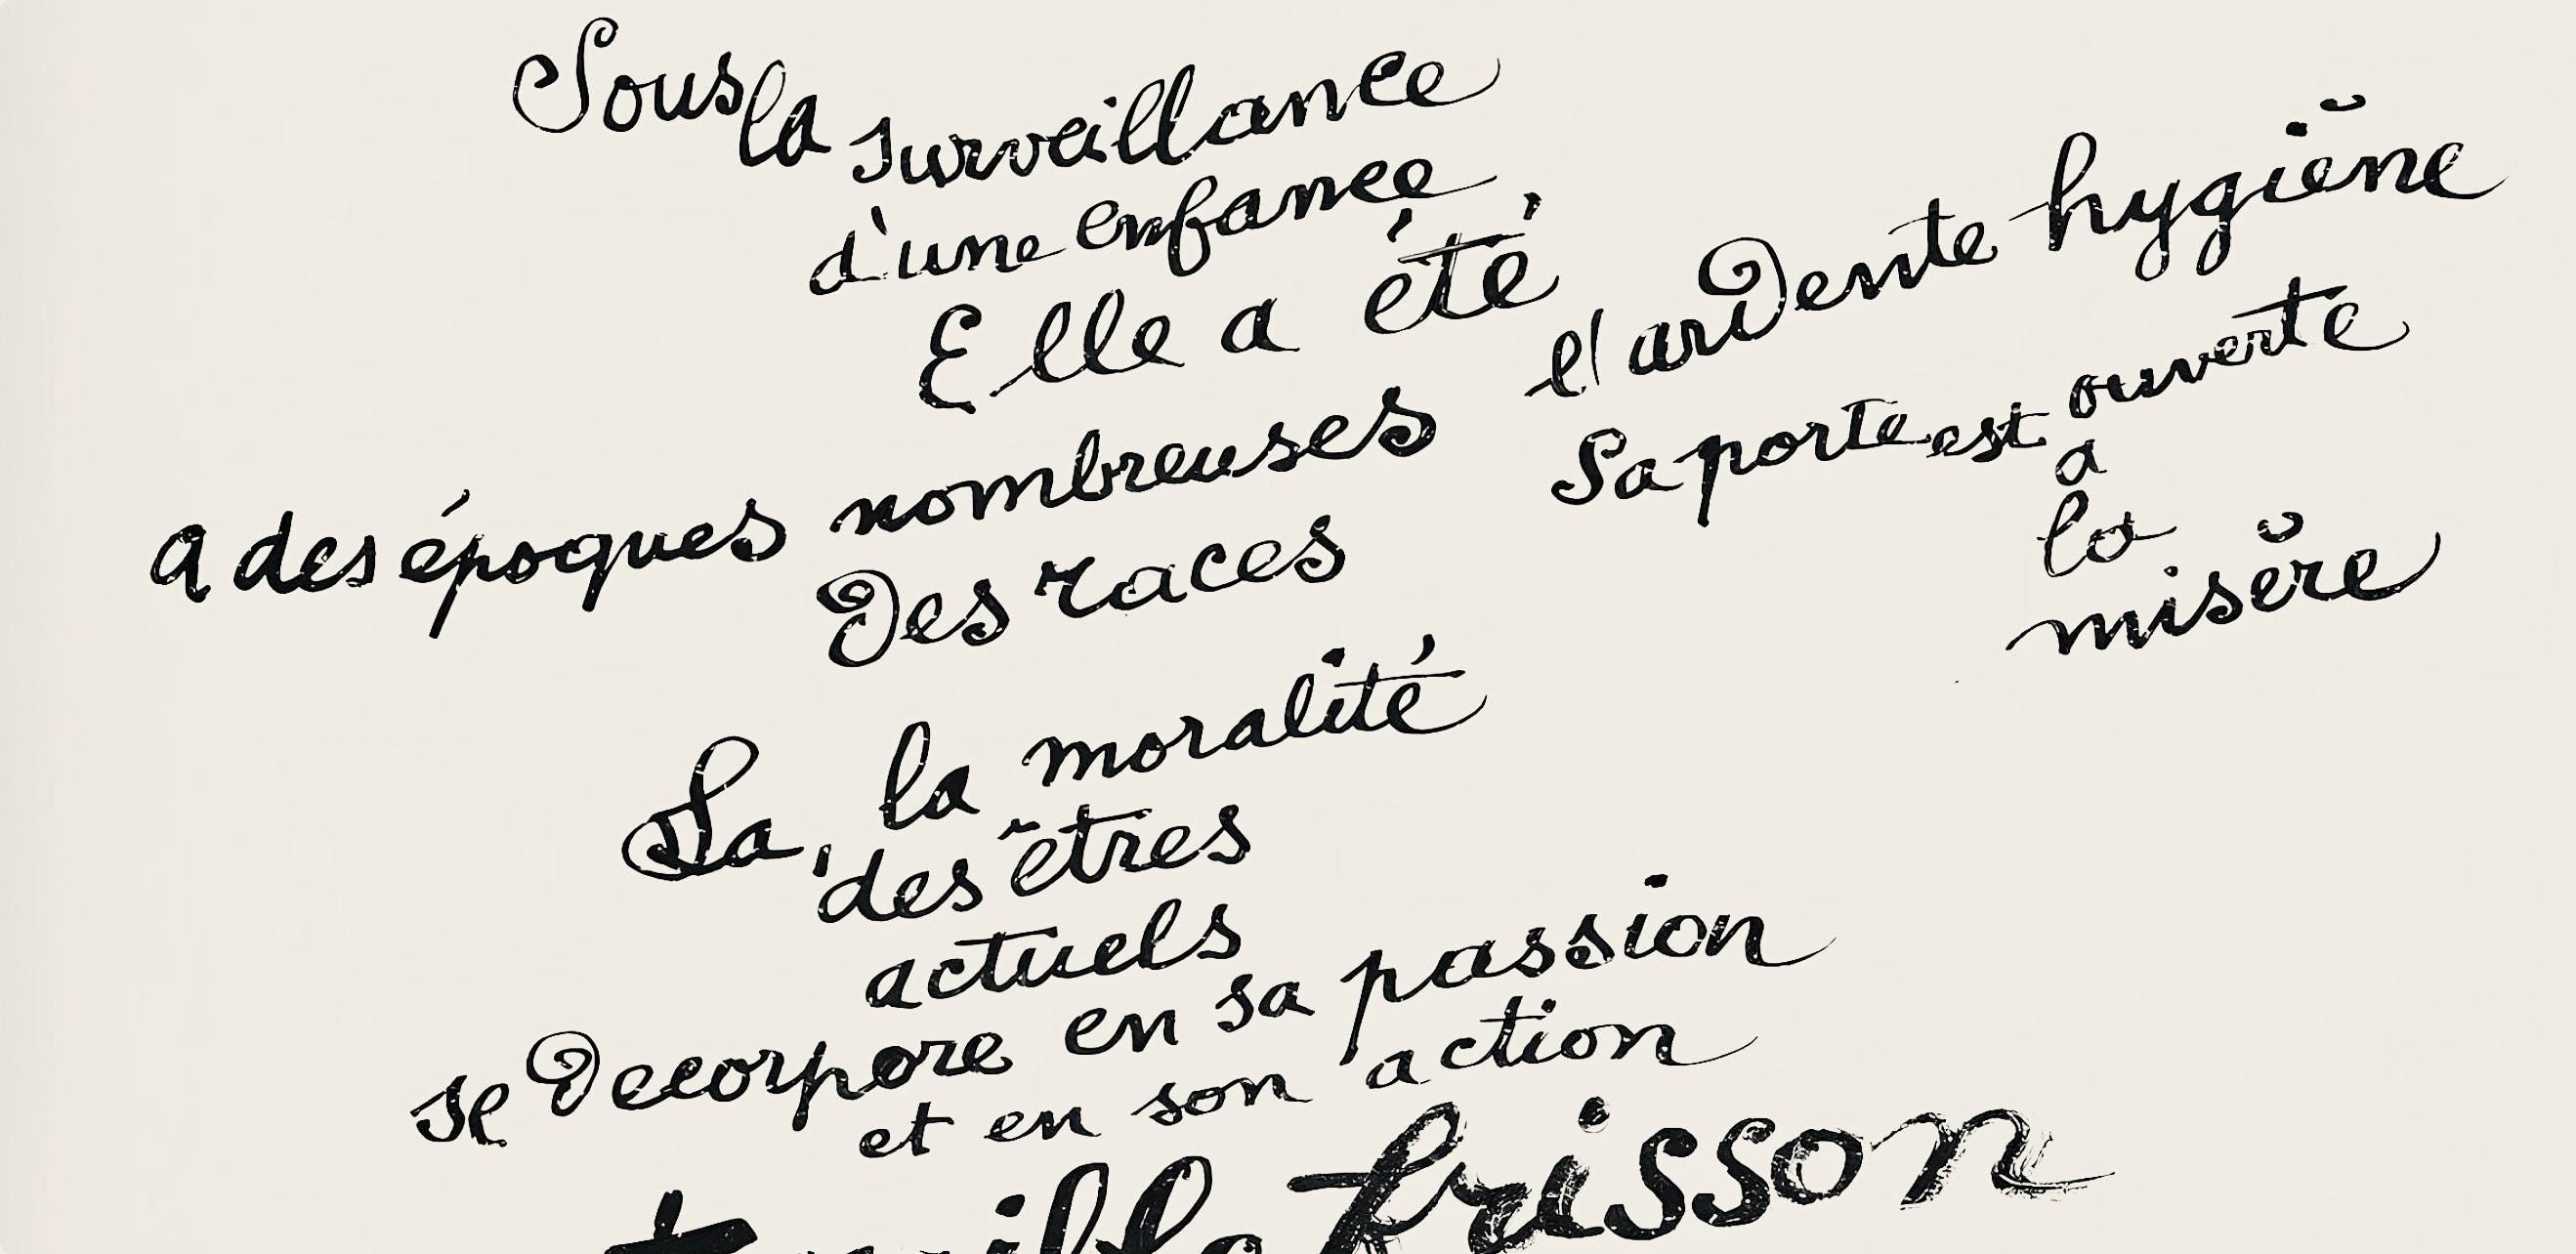 Sous la surveillance
d'une enfance
Elle a été,
a des époques nombreuses
Des races
l'ardente hygiène
Sa porte est ouverte
a
la
misère
La, la moralité
des êtres
actuels
se Decorpore en sa passion
et en son action
frisson